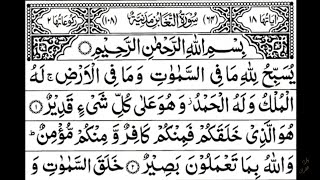 اٰیَاتُهَا ۱۸ (۶۴) سُوْرَةُ التَّغَابُنِ مَدَنِیَّةٌ (۱۰۸) رُكُوْعَاتُهَا ۲
بِسْمِ اللّٰهِ الرَّحْمٰنِ الرَّحِیْمِ
یُسَبِّحُ لِلّٰهِ مَا فِی السَّمٰوٰتِ وَمَا فِی الْاَرْضِ ۚ لَهُ
الْمُلْكُ وَلَهُ الْحَمْدُ ۫ وَهُوَ عَلٰی كُلِّ شَیْءٍ قَدِیْرٌ ۝۱
هُوَ الَّذِیْ خَلَقَكُمْ فَمِنْكُمْ كَافِرٌ وَّمِنْكُمْ مُّؤْمِنٌ ؕ
وَاللّٰهُ بِمَا تَعْمَلُوْنَ بَصِیْرٌ ۝۲ خَلَقَ السَّمٰوٰتِ وَ